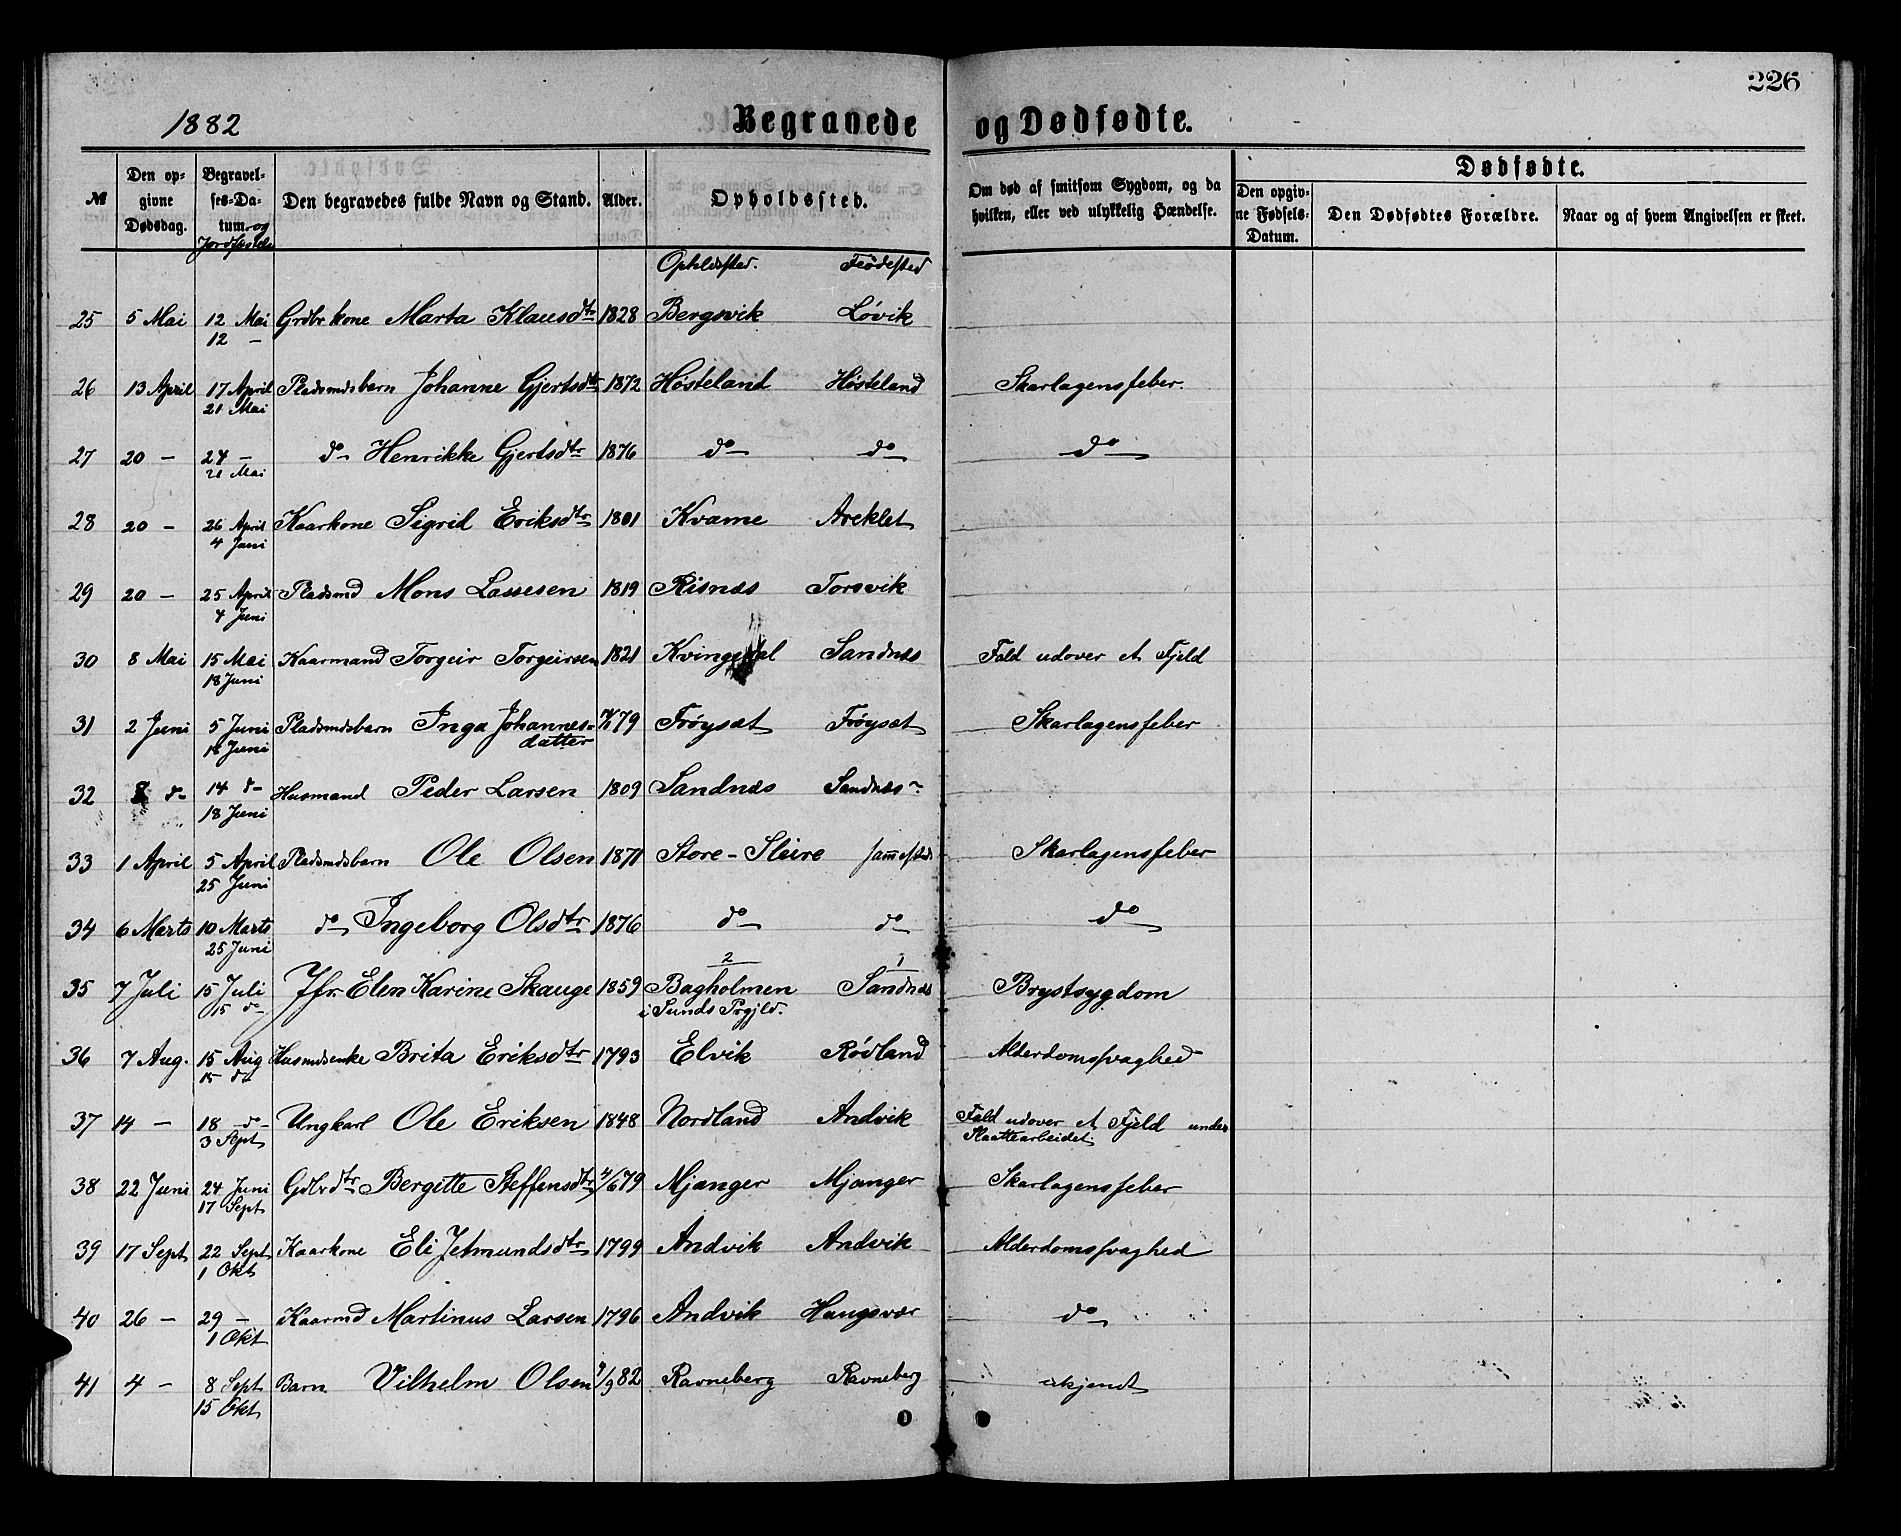 226
1882 Begravede og Dødfødte.
№ Den opgivne Dødsdag. Begravelses-Datum og Jordfæstelse Den begravedes fulde Navn og Stand. Alder. Opholdssted. Om død af smitsom Sygdom, og da hvilken, eller ved ulykkelig Hændelse. Dødfødte.
Den opgivne Fødsels-Datum. Den Dødfødtes Forældre. Naar og af hvem Angivelsen er skeet.
Opholdssted. Fødested
25 5 Mai 12 Mai Grdbrkone Marta Klausdtr 1828 Bergsvik Løvik
12 —
26 13 April 17 April Pladsmdsbarn Johanne Gjertsdtr 1872 Høsteland Høsteland Skarlagensfeber.
21 Mai
27 20 — 24 — do Henrikke Gjertsdtr 1876 do do do
21 Mai
28 20 — 26 April Kaarkone Sigrid Eriksdtr 1801 Kvame Areklet
4 Juni
29 20 — 25 April Pladsmd Mons Lassesen 1819 Risnæs Torsvik
4 Juni
30 8 Mai 15 Mai Kaarmand Torgeir Torgeirsen 1821 Kvingedal Sandnæs Fald udover et Fjeld
18 Juni
31 2 Juni 5 Juni Pladsmdsbarn Inga Johannes- 79 Frøysæt Frøysæt Skarlagensfeber
18 Juni datter
32 8 d- 14 d- Husmand Peder Larsen 1809 Sandnæs Sandnæs
18 Juni
33 1 April 5 April Pladsmdsbarn Ole Olsen 1871 Store-Sleire sammesteds Skarlagensfeber
25 Juni
34 6 Marts 10 Marts do Ingeborg Olsdtr 1876 do do do
25 Juni
2 1
35 7 Juli 15 Juli Jfr. Elen Karine Skauge 1859 Bagholmen Sandnæs Brystsygdom
15 d- i Sunds Prgjld.
36 7 Aug. 15 Aug Husmdsenke Brita Eriksdtr 1793 Elvik Rødland Alderdomssvaghed
15 d-
37 14 — 18 d- Ungkarl Ole Eriksen 1848 Nordland Andvik Fald udover et Fjeld under
3 Sept Slaattearbeidet.
38 22 Juni 24 Juni Gdbrdtr Bergitte Steffensdtr 4/6 79 Mjanger Mjanger Skarlagensfeber
17 Sept
39 17 Sept 22 Sept Kaarkone Eli Jetmundsdtr 1799 Andvik Andvik Alderdomssvaghed
1 Okt
40 26 — 29 — Kaarmd Martinus Larsen 1796 Andvik Haugsvær do
1 Okt
41 4 — 8 Sept Barn Vilhelm Olsen /9 82 Ravneberg Ravneberg ukjendt
15 Okt